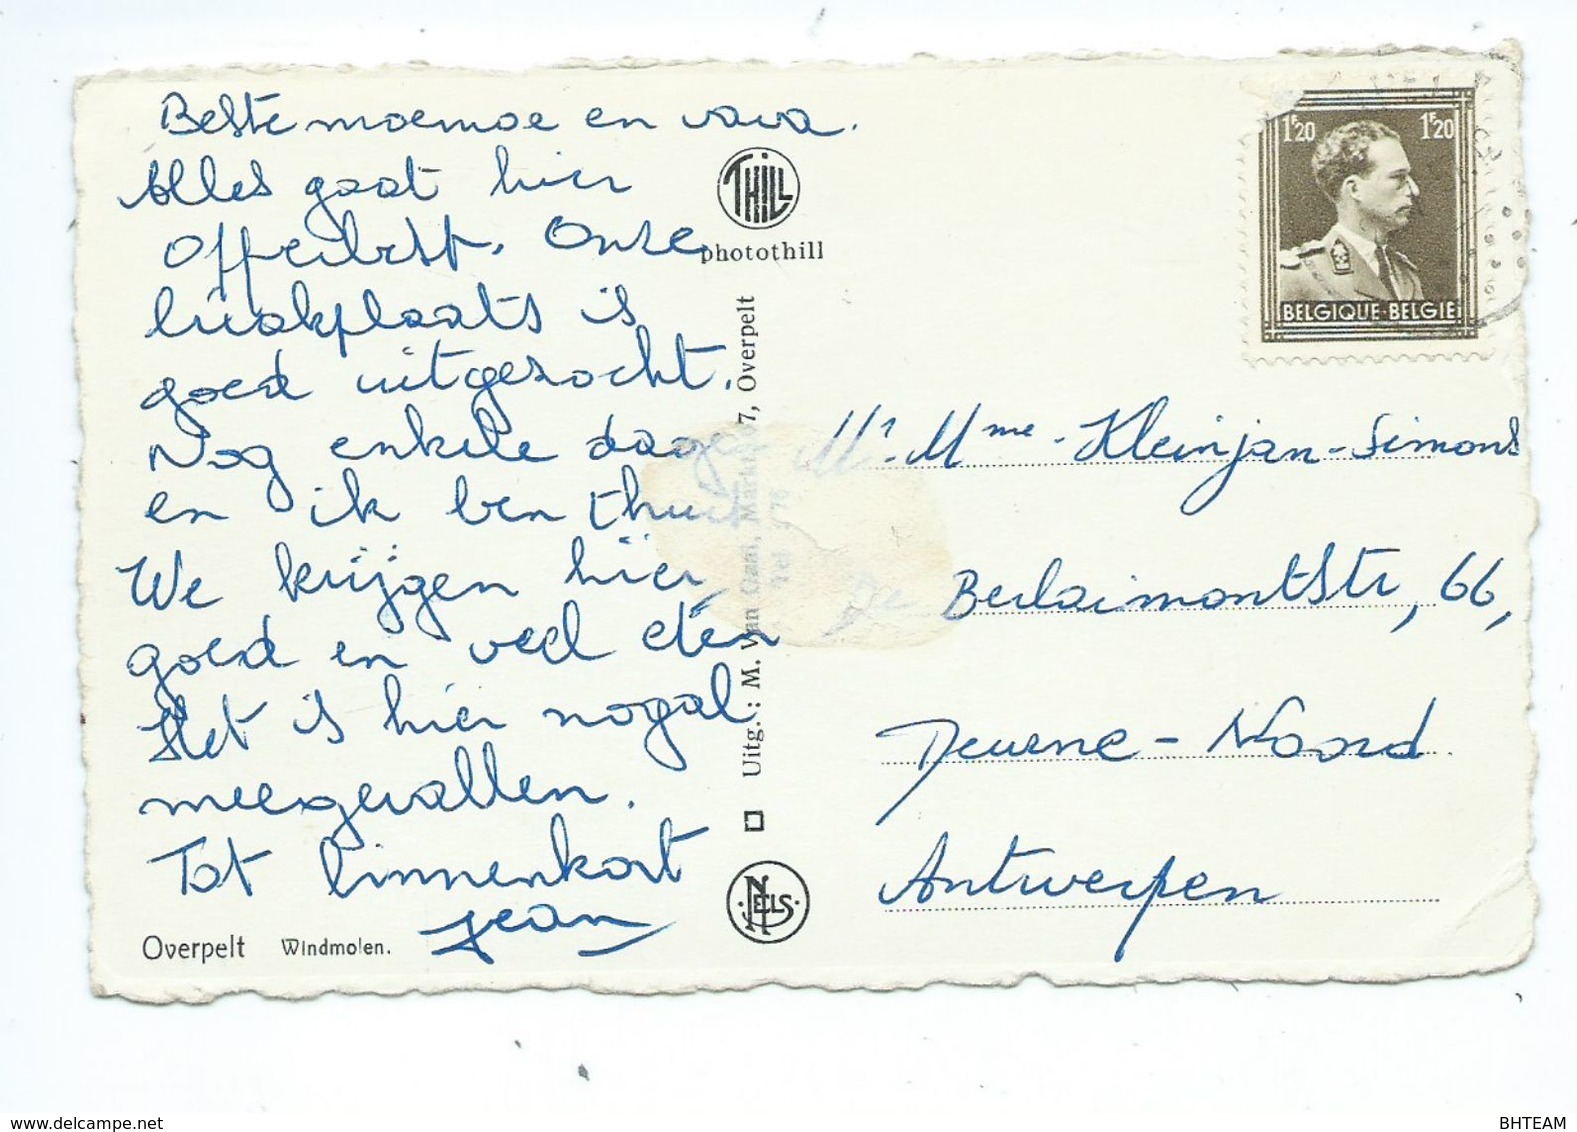 Beste moemoe en vava.
Alles gaat hier
Opperbest. Onze
kuakplaats is
goed uitgezocht.
Nog enkele dage
en ik ben thui
We krijgen hier
goed en veel eten
Het is hier nogal
meegevallen.
Tot binnenkort
Jean
Overpelt Windmolen.
THILL
photothill
Uitg.: M. van Gaal, Markt 7, Overpelt
NELS
1F20 1F20
BELGIQUE·BELGIE
Mr. Mme - Kleinjan-Simons
De Berlaimontstr, 66,
Deurne - Noord
Antwerpen
www.delcampe.net
BHTEAM